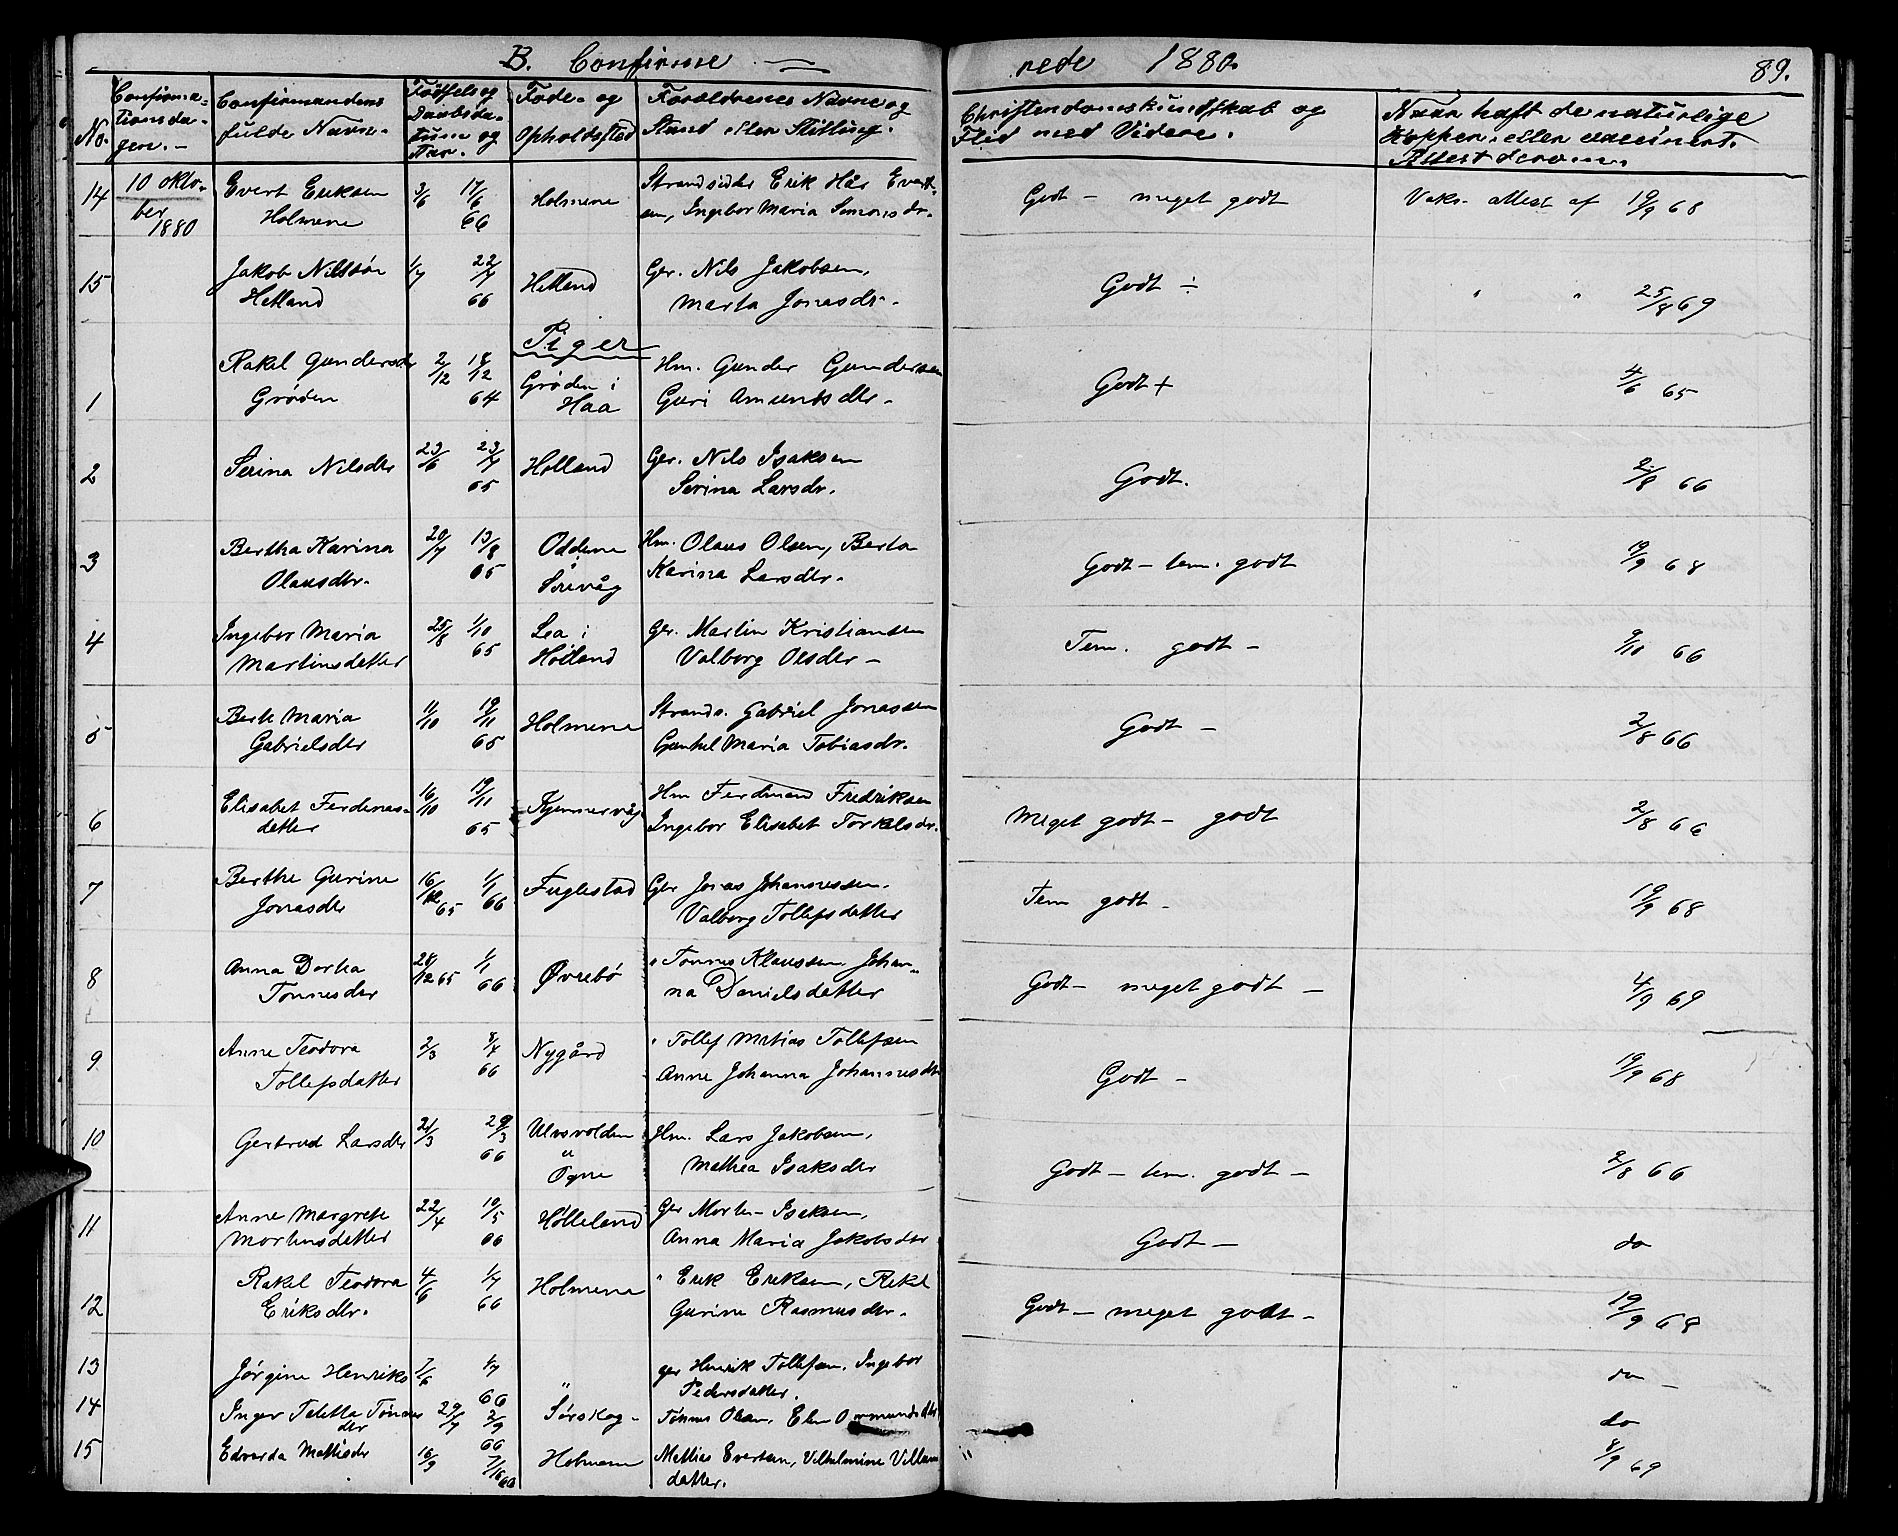 B. Confirme rede 1880. 89.
No. Confirma-
tionsda-
gen.-
Confirmandens
fulde Navn.
Fødsels og
Daabsda-
tum og
Aar.
Føde- og
Opholdssted
Forældrenes Navne og
Stand eller Stilling.
Christendomskundskab og
Flid med Videre.
Naar haft de naturlige
Kopper eller vaccinert.
Attest derom.
14 10 okto-
ber
1880
Evert Eriksen
Holmene
3/6 17/6
66
Holmene
Strandsidder Erik Hås Evert-
sen, Ingebor Maria Simonsdr.
Godt - meget godt
Vaks. attest af 19/9 68
15 Jakob Nilssøn
Hetland
1/7 22/7
66
Hetland
Gsr. Nils Jakobsen,
Marta Jonasdr.
Godt ÷
" " 25/8 69
Piger
1 Rakel Gundersdr
Grøden
2/12 18/12
64
Grøden i
Haa
Hm. Gunder Gundersen
Guri Amundsdtr.
Godt +
4/6 65
2 Serina Nilsdtr
23/6 23/7
65
Holland
Gsr. Nils Isaksen
Serina Larsdr.
Godt.
2/8 66
3 Bertha Karina
Olausdtr.
20/7 13/8
65
Oddene
i
Sirevåg
Hm. Olaus Olsen, Berta
Karina Larsdtr.
Godt - tem. godt
19/9 68
4 Ingebor Maria
Martinsdatter
25/8 1/10
65
Lea i
Hølland
Gsr. Martin Kristiansen
Valborg Olsdtr -
Tem. godt -
9/10 66
5 Berte Maria
Gabrielsdtr
11/10 19/11
65
Holmene
Strands. Gabriel Jonassen
Gunhil Maria Tobiasdr.
Godt -
2/8 66
6 Elisabet Ferdinas-
datter
16/10 19/11
65
Kjennervåg
Hm Ferdinand Fredriksen
Ingebor Elisabet Torkelsdr.
Meget godt - godt
2/8 66
7 Berthe Gurine
Jonasdtr
16/12 65 1/1
66
Fuglestad
Gsr Jonas Johannessen.
Valborg Tollefsdatter
Tem godt -
19/9 68
8 Anna Dorthea
Tønnesdtr
28/12 65 1/1
66
Øvrebø
" Tønnes Klaussen, Johan-
na Danielsdatter
Godt - meget godt -
4/9 69
9 Anne Teodora
Tollefsdatter
2/3 8/4
66
Nygård
" Tollef Matias Tollefsen
Anne Johanna Johannesdtr
Godt -
19/9 68
10 Gertrud Larsdtr
21/3 29/3
66
Ulvsvolden
"
Ogne
Hm. Lars Jakobsen,
Mathea Isaksdtr
Godt - tem. godt -
2/8 66
11 Anne Margrete
Mortensdatter
22/4 19/5
66
Hølleland
Gsr Morten Isaksen,
Anna Maria Jakobsdtr
Godt -
do
12 Rakel Teodora
Eriksdtr.
4/6 1/7
66
Holmene
" Erik Eriksen, Rakel
Gurine Rasmusdtr.
Godt - meget godt -
19/9 68
13 Jørgine Henriks
7/6 1/7
66
"
gsr Henrik Tollefsen. Ingebor
Pedersdatter.
do -
14 Inger Teletta Tønnes
dtr
29/7 2/9
66
Sørskog -
Tønnes Olsen, Elen Ommundsdtr
do
15 Edvarda Mathisdtr
16/9 7/10 66
Holmene
Mathias Evertsen, Vilhelmine Villum
datter.
"
8/9 69